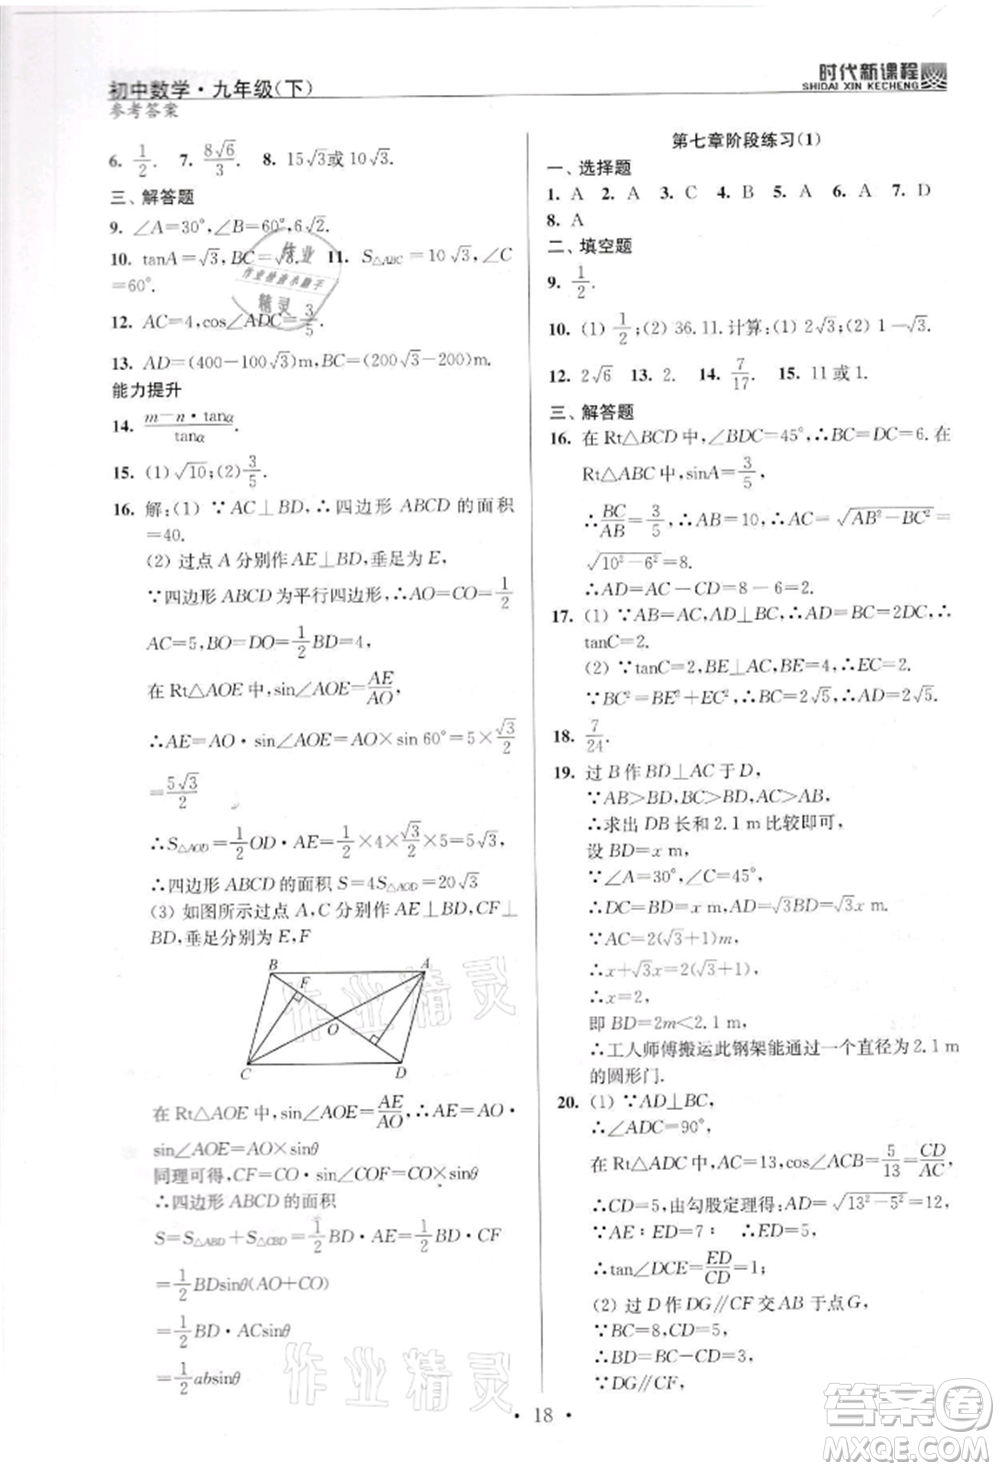 初中数学·九年级(下)
参考答案
时代新课程
SHIDAI XIN KECHENG
6. 1/2. 7. 8√6/3. 8. 15√3或10√3.
三、解答题
9. ∠A=30°,∠B=60°,6√2.
10. tanA=√3,BC=√6. 11. S△ABC=10√3,∠C
=60°.
12. AC=4,cos∠ADC=3/5.
13. AD=(400-100√3)m,BC=(200√3-200)m.
能力提升
14. (m-n·tanα)/tanα.
15. (1)√10;(2)3/5.
16. 解:(1) ∵AC⊥BD,∴四边形 ABCD 的面积
=40.
(2) 过点 A 分别作 AE⊥BD,垂足为 E,
∵四边形 ABCD 为平行四边形,∴AO=CO=1/2
AC=5,BO=DO=1/2BD=4,
在 Rt△AOE 中,sin∠AOE=AE/AO,
∴AE=AO·sin∠AOE=AO×sin 60°=5×√3/2
=5√3/2
∴S△AOD=1/2OD·AE=1/2×4×√3/2×5=5√3
∴四边形 ABCD 的面积 S=4S△AOD=20√3
(3) 如图所示过点 A,C 分别作 AE⊥BD,CF⊥
BD,垂足分别为 E,F
B
A
F
O
C
D
在 Rt△AOE 中,sin∠AOE=AE/AO,∴AE=AO·
sin∠AOE=AO×sinθ
同理可得,CF=CO·sin∠COF=CO×sinθ
∴四边形 ABCD 的面积
S=S△ABD+S△CBD=1/2BD·AE+1/2BD·CF
=1/2BDsinθ(AO+CO)
=1/2BD·ACsinθ
=1/2absinθ
第七章阶段练习(1)
一、选择题
1. A 2. A 3. C 4. B 5. A 6. A 7. D
8. A
二、填空题
9. 1/2.
10. (1) 1/2;(2) 36.11.计算:(1) 2√3;(2) 1-√3.
12. 2√6 13. 2. 14. 7/17. 15. 11 或 1.
三、解答题
16. 在 Rt△BCD 中,∠BDC=45°,∴BC=DC=6.在
Rt△ABC 中,sinA=3/5,
∴BC/AB=3/5,∴AB=10,∴AC=√(AB²-BC²)=
√(10²-6²)=8.
∴AD=AC-CD=8-6=2.
17. (1) ∵AB=AC,AD⊥BC,∴AD=BC=2DC,∴
tanC=2.
(2) ∵tanC=2,BE⊥AC,BE=4,∴EC=2.
∵BC²=BE²+EC²,∴BC=2√5,∴AD=2√5.
18. 7/24.
19. 过 B 作 BD⊥AC 于 D,
∵AB>BD,BC>BD,AC>AB,
∴求出 DB 长和 2.1 m 比较即可,
设 BD=x m,
∵∠A=30°,∠C=45°,
∴DC=BD=x m,AD=√3BD=√3x m.
∵AC=2(√3+1)m,
∴x+√3x=2(√3+1),
∴x=2,
即 BD=2m<2.1 m,
∴工人师傅搬运此钢架能通过一个直径为2.1 m
的圆形门.
20. (1) ∵AD⊥BC,
∴∠ADC=90°,
在 Rt△ADC 中,AC=13,cos∠ACB=5/13=CD/AC,
∴CD=5,由勾股定理得:AD=√(13²-5²)=12,
∵AE∶ED=7∶ ∴ED=5,
∴tan∠DCE=ED/CD=1;
(2) 过 D 作 DG∥CF 交 AB 于点 G,
∵BC=8,CD=5,
∴BD=BC-CD=3,
∵DG∥CF,
• 18 •
作业
作业检查小助手
精灵
作业精灵
作业精灵
答案圈
MXQE.COM